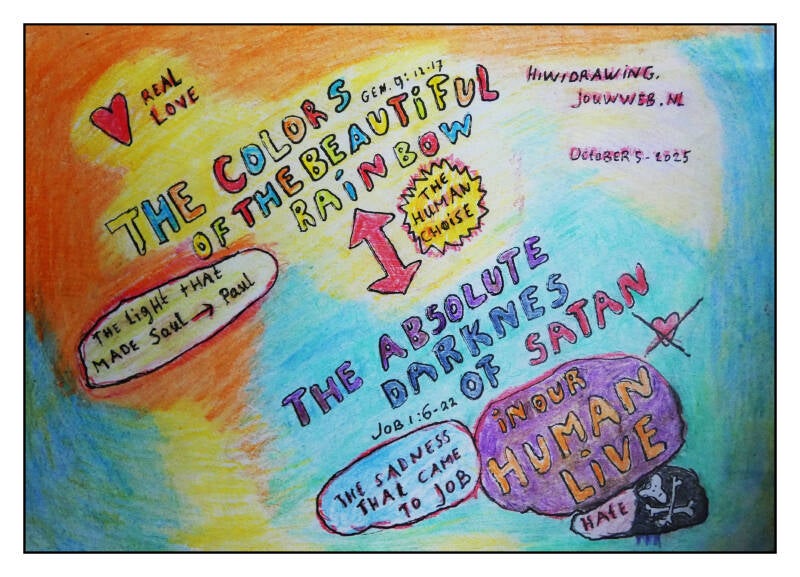 REAL
LOVE
THE COLORS GEN. 9:12-17
OF THE BEAUTIFUL
RAINBOW
HIWIDRAWING.
JOUWWEB.NL
OCTOBER 5-2025
THE
HUMAN
CHOISE
THE LIGHT THAT
MADE Saul → Paul
THE ABSOLUTE
DARKNES
OF SATAN
JOB 1:6-22
IN OUR
HUMAN
LIVE
THE SADNESS
THAT CAME
TO JOB
HATE